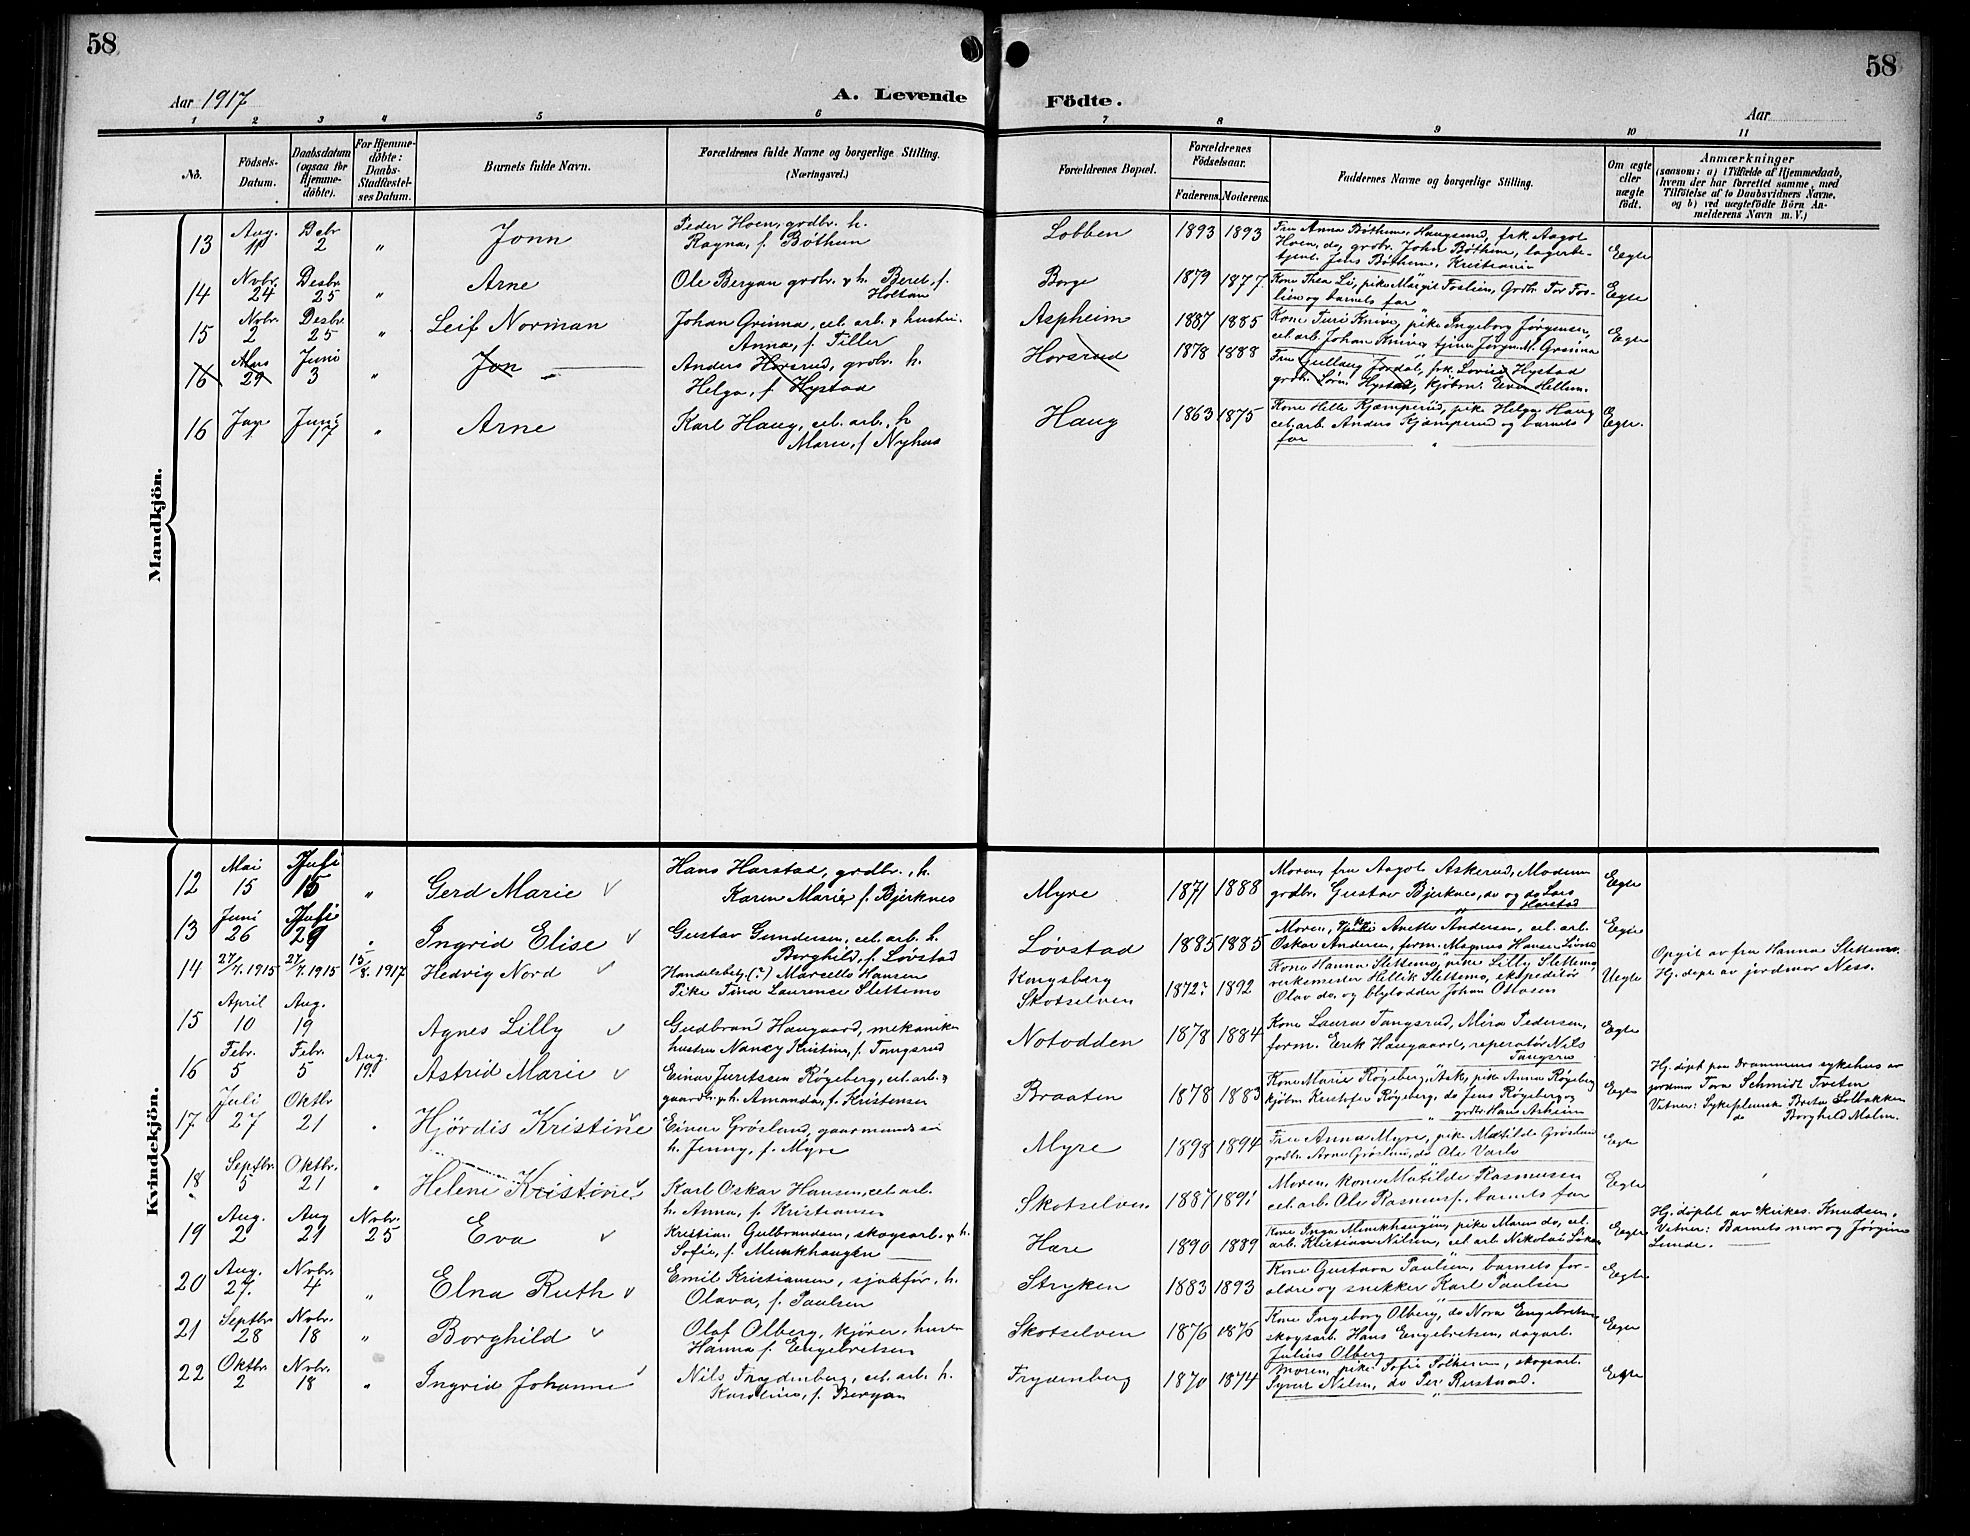 58
58
Aar 1917
A. Levende
Födte.
Aar
1 2 3 4 5 6 7 8 9 10 11
No.
Födsels-
Datum.
Daabsdatum
(ogsaa for
Hjemme-
döbte).
For Hjemme-
döbte:
Daabs-
Stadfæstel-
ses Datum.
Barnets fulde Navn.
Forældrenes fulde Navne og borgerlige Stilling.
(Næringsvei.)
Forældrenes Bopæl.
Forældrenes
Födselsaar.
Faderens. Moderens.
Faddernes Navne og borgerlige Stilling.
Om ægte
eller
uægte
födt.
Anmærkninger
(saasom: a) i Tilfælde af Hjemmedaab,
hvem der har forrettet samme, med
Tilföielse af to Daabsvidners Navne,
og b) ved uægtefödte Börn An-
melderens Navn m. V.)
Mandkjön.
13 Aug. 11 Debr 2 " Jonn
Peder Hoen, grdbr. h.
Ragna, f. Bøthun
Lobben 1893 1893
Fru Anna Bøthun, Haugsund, frk Aagot
Hoen, do, grdbr. John Bøthun, lagerbe-
tjent Jens Bøthun, Kristiania
Egte
14 Nvbr. 24 Desbr. 25 " Arne
Ole Bergan grdbr. & h. Beret, f.
Holtan
Borge 1879 1877.
Kone Thea Li, pike Margit Foslien, Grdbr. Tor Fos-
lien og barnets far
Egte
15 Nvbr. 2 Desbr. 25 " Leif Norman
Johan Grinna, cel. arb. & hustru
Anna, f. Tiller
Aspheim 1887 1885
Kone Turi Knive, pike Ingeborg Jørgensen,
cel. arb. Johan Knive, tjener Jørgen M. Grinna
Egte
16 Mars 29 Juni 3 " Jon
Anders Horsrud, grdbr. h.
Helga, f. Hystad
Horsrud 1878 1888
Fru Gullaug Jordal, frk. Lovise Hystad
grdbr. Søren Hystad, kjøbm. Even Hellum.
16 Jan 1 Juni 17 " Arne
Karl Haug, cel. arb., h
Maren, f. Nyhus
Haug 1863 1875
Kone Helle Kjæmperud, pike Helga Haug
cel. arb. Anders Kjæmperud og barnets
far
Egte.
Kvindekjön.
12 Mai 15 Juli 15 " Gerd Marie
Hans Harstad, grdbr., h.
Karen Marie, f. Bjerknes
Myre 1871 1888
Moren, fru Aagot Askerud, Modum
grdbr. Gustav Bjerknes, do og do Lars
Harstad
Egte
13 Juni 26 Juli 29 " Ingrid Elise
Gustav Gundersen, cel. arb. h.
Borghild, f. Løvstad
Løvstad 1885 1885
Moren, Anette Andersen, cel. arb.
Oskar Andersen, form. Magnus Hansen
Egte
14 27/7. 1915 27/7. 1915 15/8. 1917 Hedvig Nord
Handelsbetj. (?) Marcelle Hansen
Pike Tina Laurence Slettemo
Kongsberg
Skotselven
1872? 1892
Kone Hanna Slettemo, pike Lilly Slettemo,
verksmester Hellik Slettemo, ekspeditør
Olav do, og blylodder Johan Ottosen
Uegte
Opgit av fru Hanna Slettemo.
Hj. døpt av jordmor Ness.
15 April 10 Aug. 19 Agnes Lilly
Gudbrand Haugaard, mekaniker
hustru Nancy Kristine, f. Tangsrud
Notodden 1878 1884
Kone Laura Tangsrud, Mira Pedersen,
form. Erik Haugaard, reperatør Nils
Tangsrud
Egte
16 Febr. 5 Febr. 5 Aug. 19. Astrid Marie
Einar Juritssen Røgeberg, cel. arb. &
gaardbr. & h. Amanda, f. Kristensen
Braaten 1878 1883
Kone Marie Røgeberg, Ask, pike Anna Røgeberg
kjøbm. Kristofer Røgeberg, do Jens Røgeberg og
grdbr. Hans Askeim
Egte
Hj. døpt paa Drammens sykehus av
jordmor Tora Schmidt Tveten
Vitner: Sykepleierske Berta Solbakken
do Borghild Malm.
17 Juli 27 Oktbr 21 " Hjördis Kristine
Einar Grøsland, gaardmandssøn
h. Jenny, f. Myre
Myre 1898 1894
Fru Anna Myre, pik. Matilde Grøsland
grdbr. Arne Grøslan, do Ole Varlo
Egte
18 Septbr. 5 Oktbr. 21 " Helene Kristine
Karl Oskar Hansen, cel. arb.
h. Anna, f. Kristiansen
Skotselven 1887 1891
Moren, kone Matilde Rasmussen
cel. arb. Ole Rasmus., barnets far
Egte
19 Aug. 2 Aug 21 Nvbr. 25 Eva
Kristian Gulbrandsen, skogsarb. & h.
Sofie, f. Munkhaugen
Hære 1890 1889
Kone Inga Munkhaugen, pike Maren do, cel.
arb. Kristian Nilsen, cel. arb Nikolai
Egte
Hj. døpt av Krikes. Knudsen.
Vitner: Barnets mor og Jørgine
Lunde.
20 Aug. 27. Nvbr. 4 " Elna Ruth
Emil Kristiansen, sjaufør, h.
Olava, f. Paulsen
Stryken 1883 1893
Kone Gustava Paulsen, barnets for-
ældre og snekker Karl Paulsen
Egte
21 Septbr 28 Nvbr. 18 " Borghild
Olaf Olberg, kjører, hustru
Hanna f. Engebretsen
Skotselven 1876 1876
Kone Ingeborg Olberg, do Nora Engebretsen
skogsarb. Hans Engebretsen, dagarb.
Julius Olberg
Egte
22 Oktbr. 2 Nvbr. 18 " Ingrid Johanne
Nils Frydenberg, cel. arb. h.
Karoline, f. Bergan
Frydenberg 1870 1874
Moren, pike Sofie Solheim, skogsarb.
Syver Nilsen, do Per Rustand.
Egte